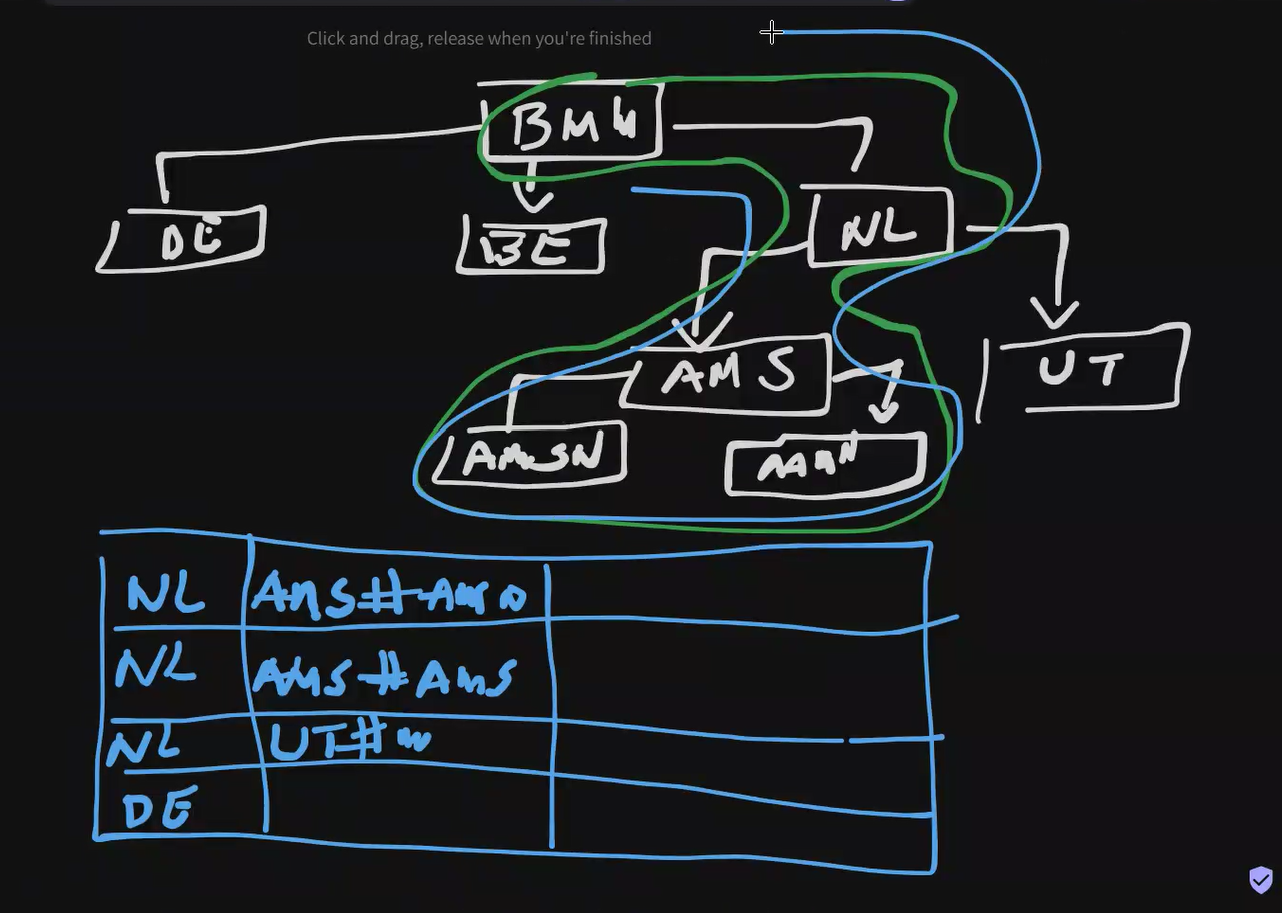 Click and drag, release when you're finished
BMW
DE
BE
NL
AMS
UT
AMSN
NL AMS#
NL AMS#AMS
NL UT#
DE